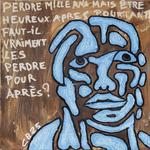 PERDRE MILLE ANS MAIS ÊTRE
HEUREUX APRES POURTANT
FAUT-IL
VRAIMENT
LES
PERDRE
POUR
APRÈS?